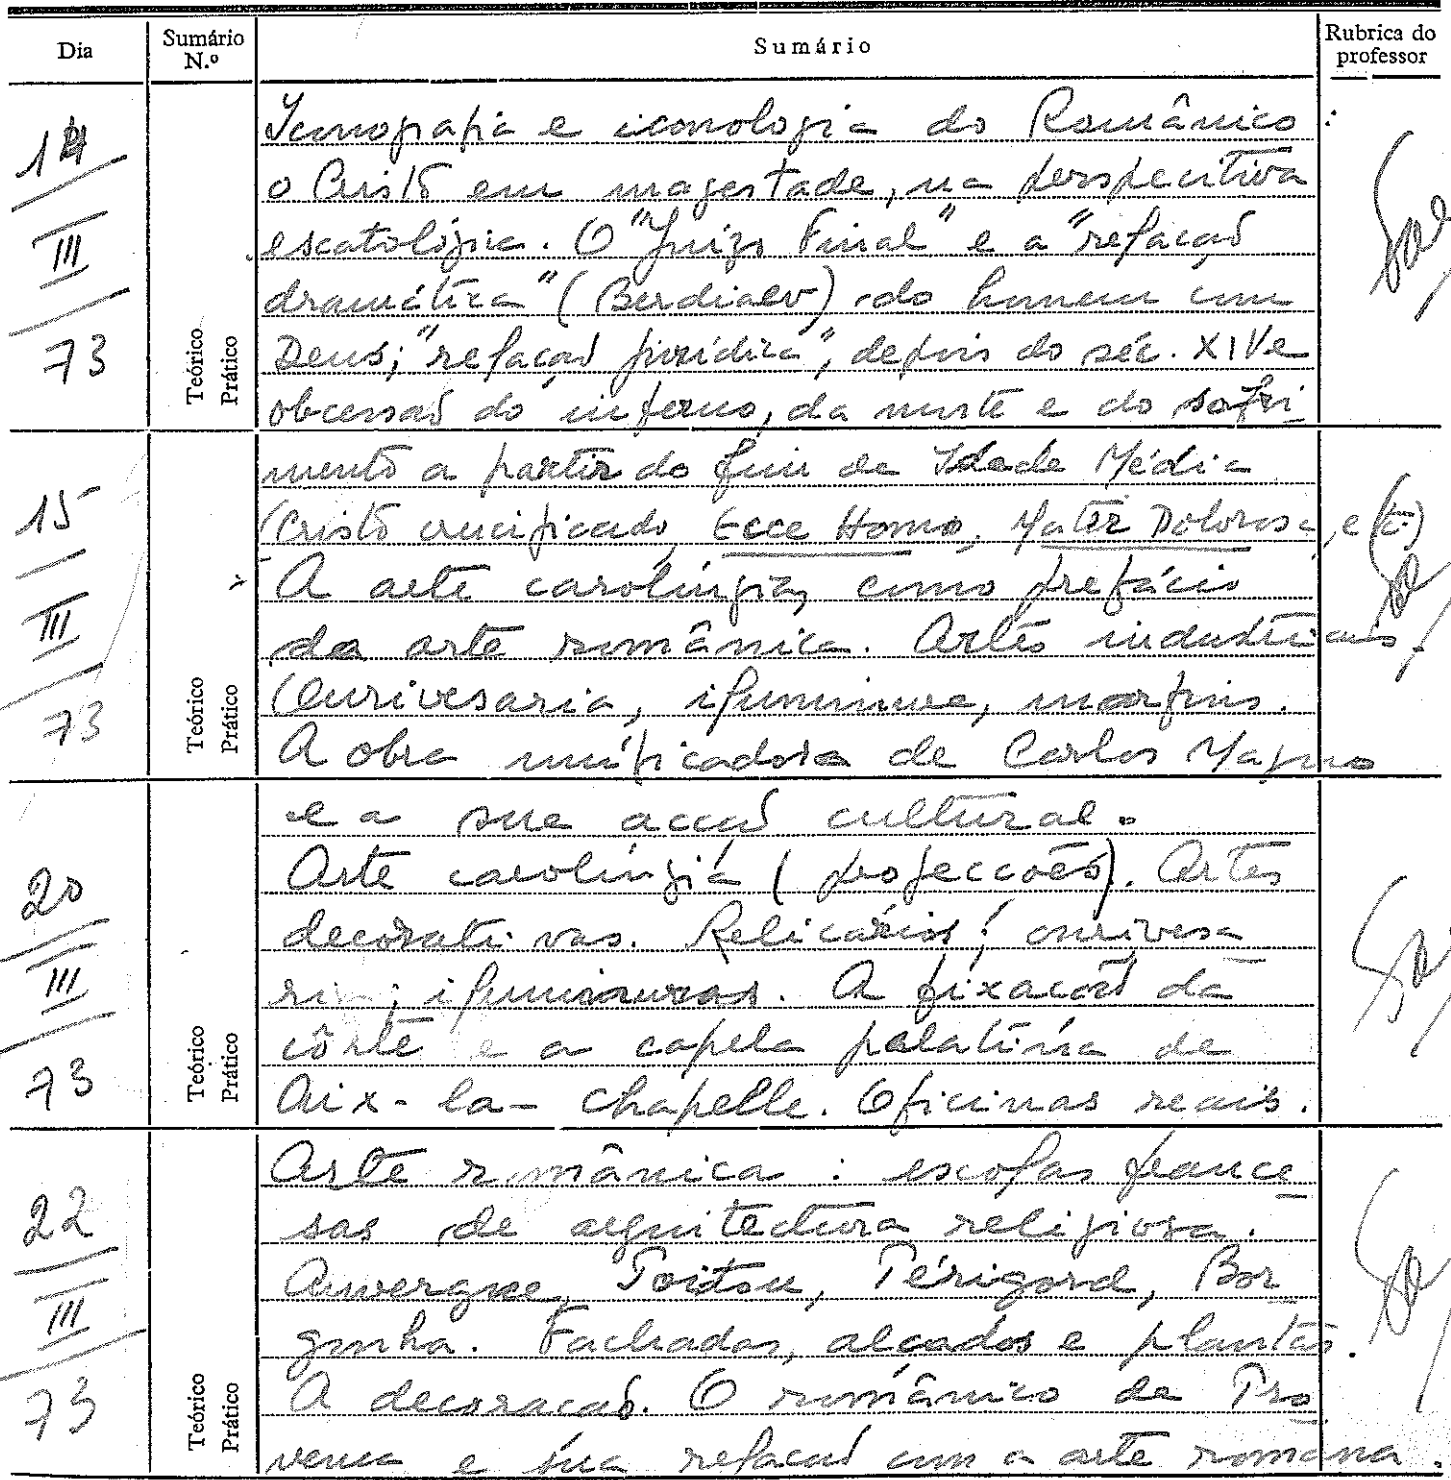 Dia Sumário N.º Sumário Rubrica do professor
14 III 73
Teórico Prático
Iconografia e iconologia do Românico:
o Cristo em magestade, na perspectiva
escatológica. O "Juízo Final" e a "relação
dramática" (Berdiaev) do homem com
Deus; "relação jurídica", depois do séc. XIV e
obcessão do inferno, da morte e do sofri
15 III 73
Teórico Prático
mento a partir do fim da Idade Média
(Cristo crucificado, Ecce Homo, Mater Dolorosa, etc.)
A arte carolíngia, como prefácio
da arte românica. Artes industriais
(ourivesaria, iluminura, marfins.
A obra unificadora de Carlos Magno
20 III 73
Teórico Prático
e a sua acção cultural.
Arte carolíngia (projecções). Artes
decorativas. Relicários; ourivesa
ria; iluminuras. A fixação da
côrte e a capela palatina de
Aix-la-Chapelle. Oficinas reais.
22 III 73
Teórico Prático
Arte românica: escolas france
sas de arquitectura religiosa.
Auvergne, Poitou, Périgord, Bor
gonha. Fachadas, alçados e plantas.
A decoração. O românico da Pro
vença e sua relação com a arte romana.